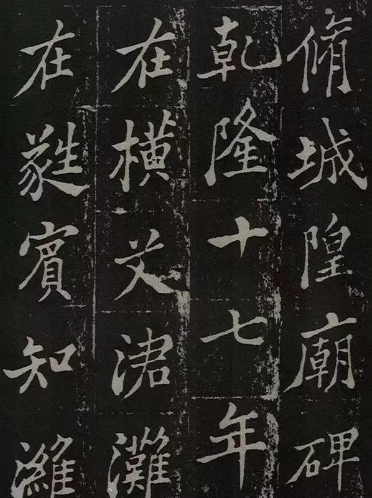 脩城隍廟碑
乾隆十七年
在横艾涒灘
在蕤賓知濰